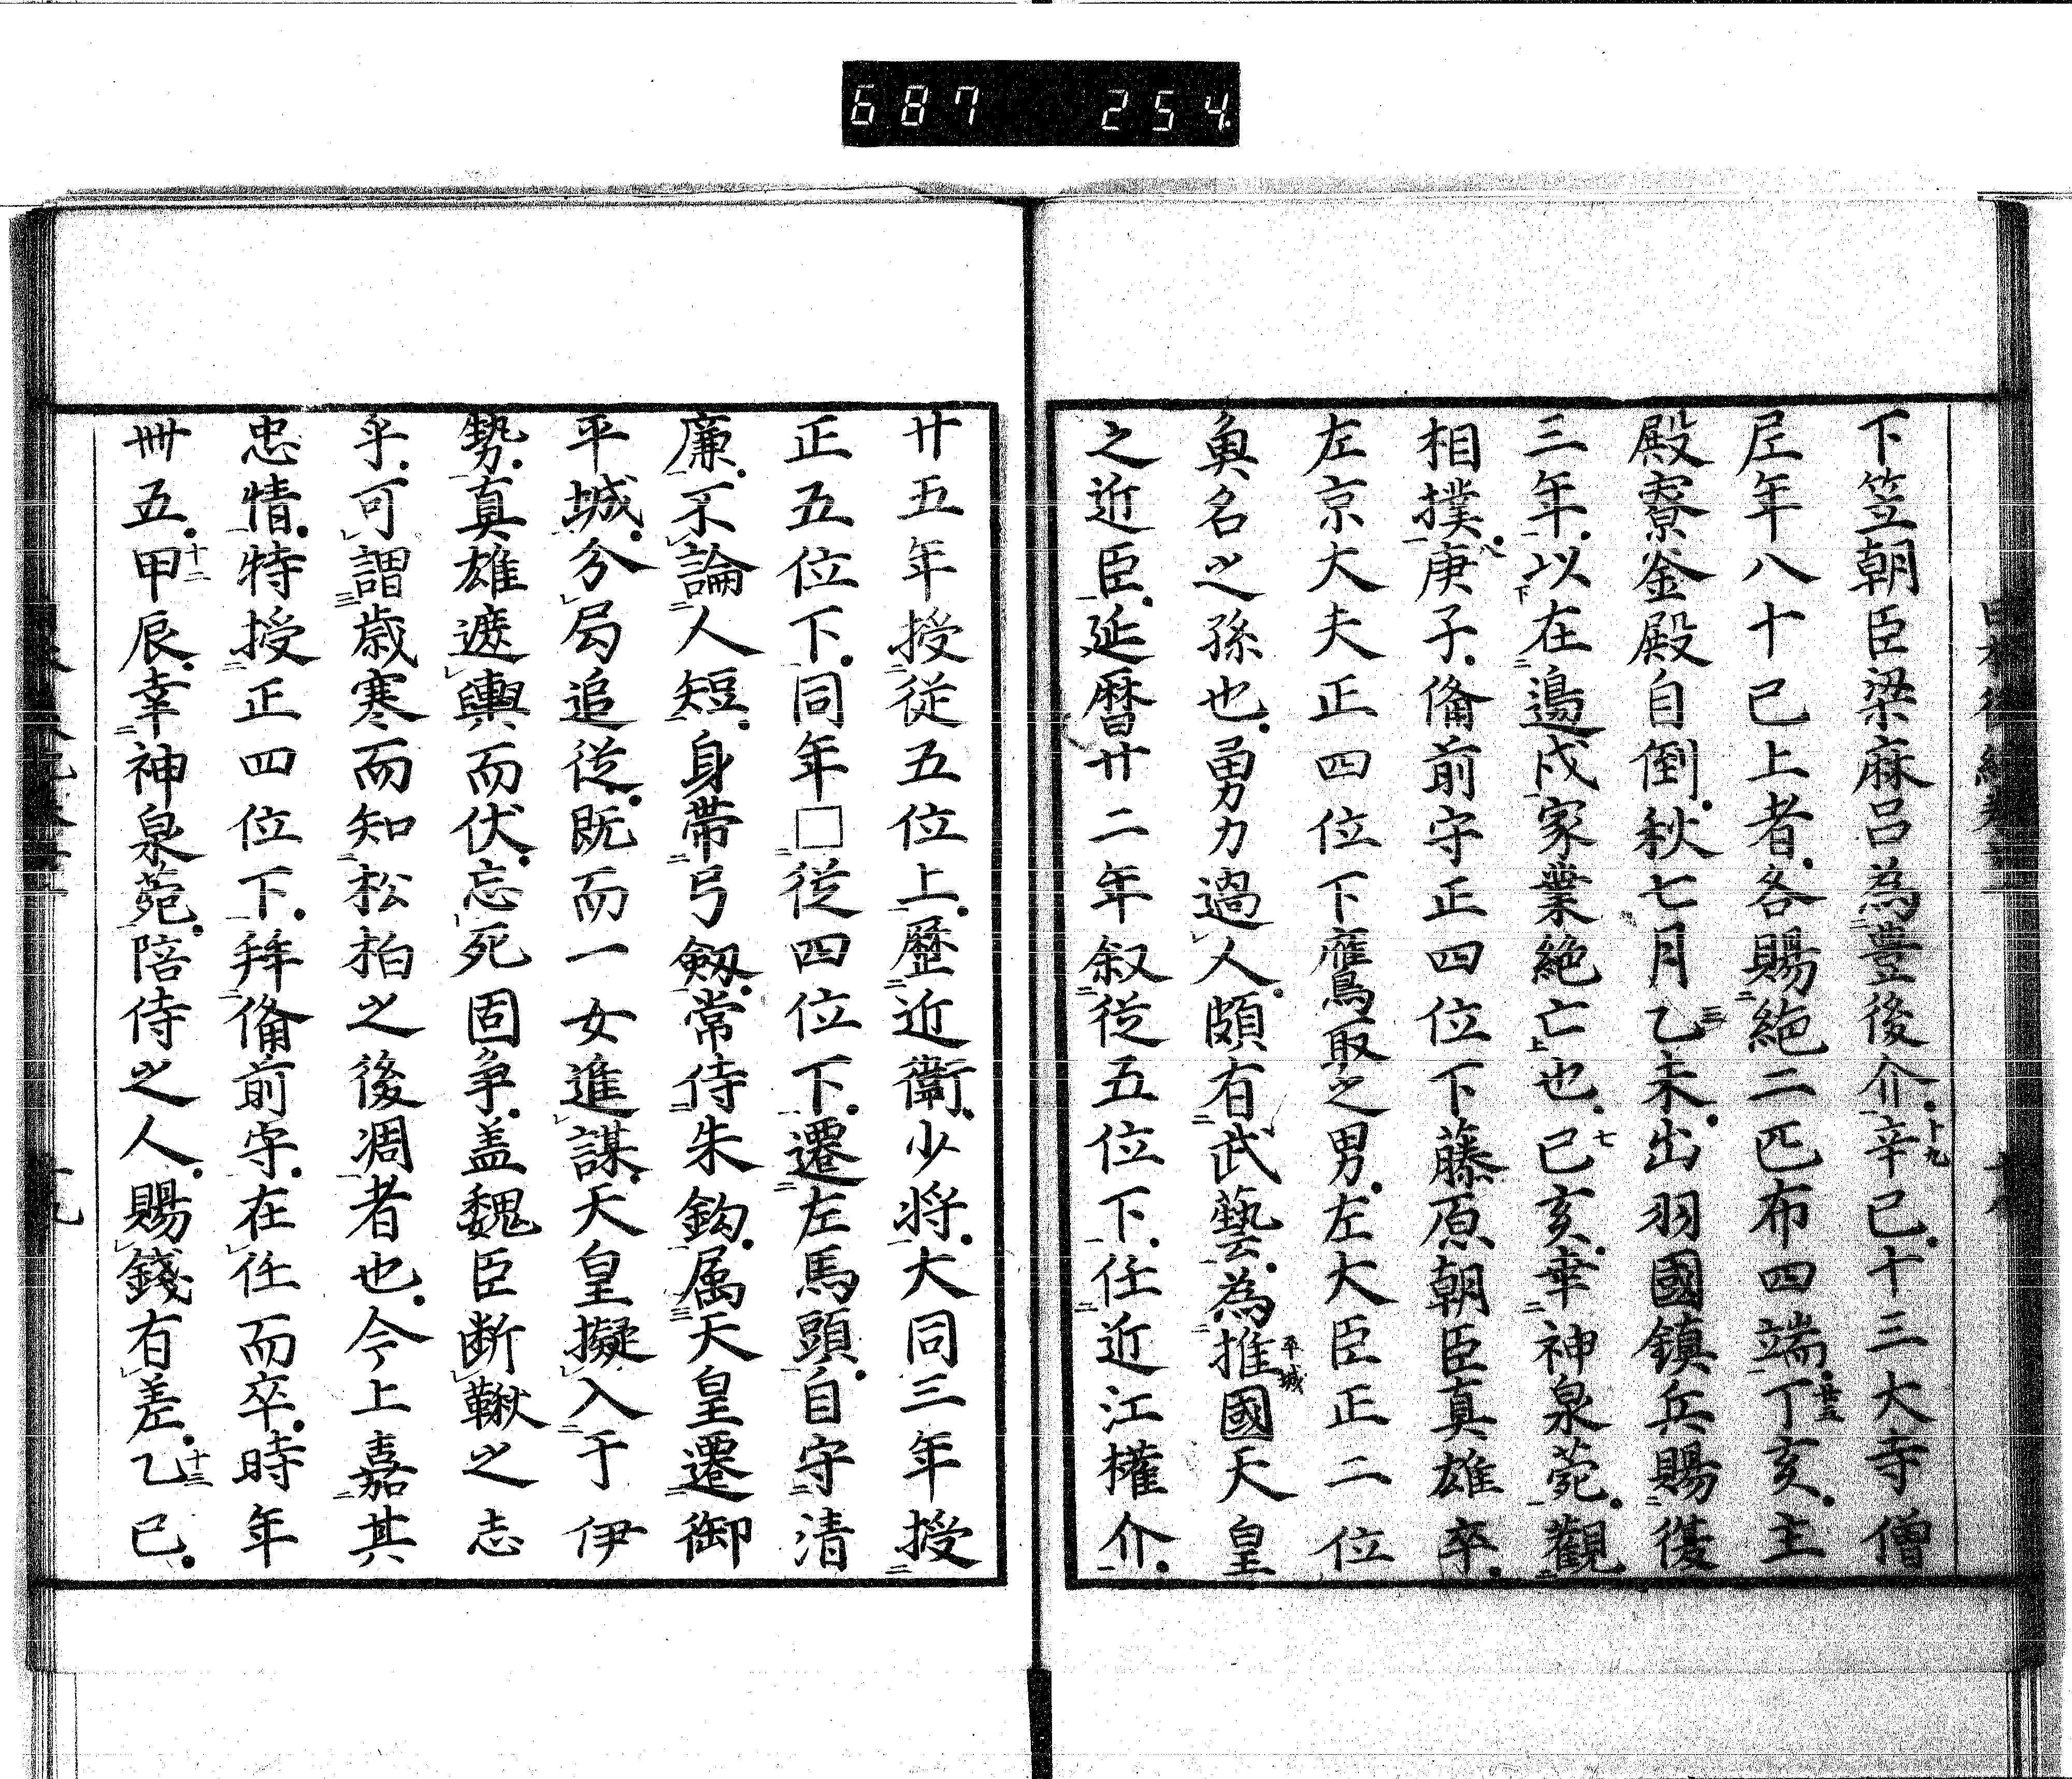 687 254
下笠朝臣梁麻呂為豊後介辛巳十三大寺僧
尼年八十已上者各賜絁二匹布四端丁亥主
殿寮釜殿自倒秋七月乙未出羽國鎮兵賜復
三年以在邊戍家業絶亡也己亥幸神泉苑觀
相撲庚子俻前守正四位下藤原朝臣真雄卒
左京大夫正四位下鷹取之男左大臣正二位
魚名之孫也勇力過人頗有武藝為推國天皇
之近臣延暦廿二年叙従五位下任近江權介
廿五年授従五位上歷近衛少将大同三年授
正五位下同年□従四位下遷左馬頭自守清
廉不論人短身帶弓劔常侍朱鈎属天皇遷御
平城分局追従既而一女進謀天皇擬入于伊
勢真雄遮輿而伏忘死固争盖魏臣断鞦之志
乎可謂歳寒而知松柏之後凋者也今上嘉其
忠情特授正四位下拜俻前守在任而卒時年
卌五甲辰幸神泉苑陪侍之人賜錢有差乙巳